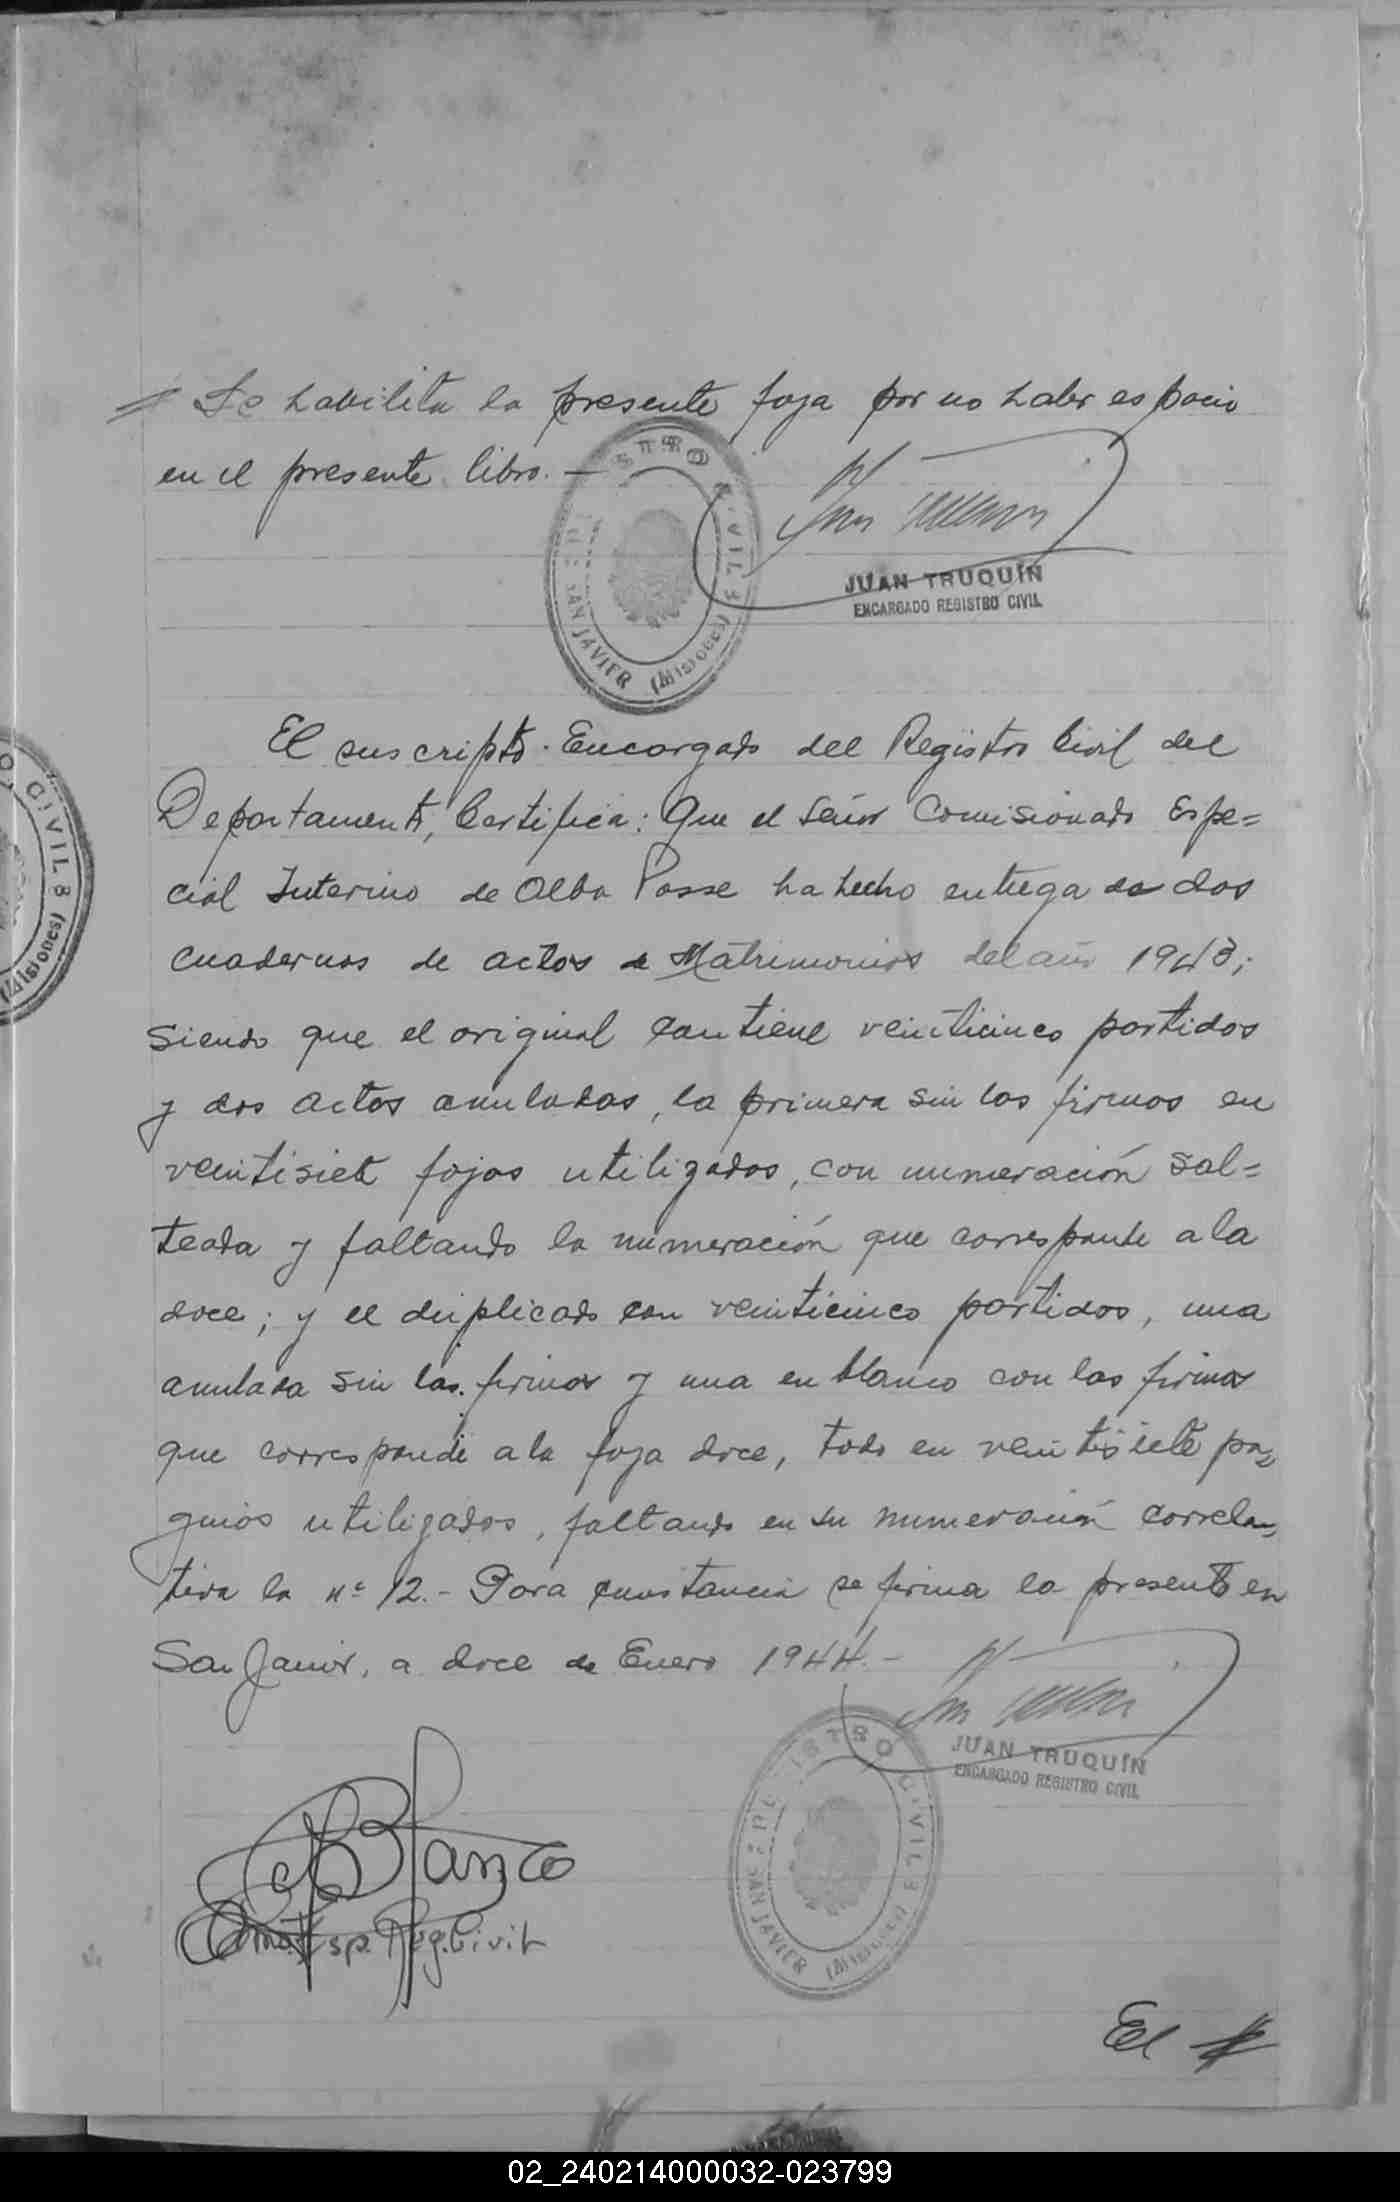 Se habilita la presente foja por no haber espacio
en el presente libro.—
REGISTRO CIVIL 8
SAN JAVIER (Misiones)
JUAN TRUQUÍN
ENCARGADO REGISTRO CIVIL
El suscripto Encargado del Registro Civil del
Departamento, Certifica: Que el Señor Comisionado Espe=
cial Interino de Alba Posse ha hecho entrega de dos
cuadernos de actas de Matrimonios del año 1943;
siendo que el original contiene veinticinco partidas
y dos actas anuladas, la primera sin las firmas en
veintisiete fojas utilizadas, con numeración sal=
teada y faltando la numeración que corresponde a la
doce; y el duplicado con veinticinco partidas, una
anulada sin las firmas y una en blanco con las firmas
que corresponde a la foja doce, todo en veintisiete pá=
ginas utilizadas, faltando en su numeración correla=
tiva la nº 12.- Para constancia se firma la presente en
San Javier, a doce de Enero 1944.-
JUAN TRUQUÍN
ENCARGADO REGISTRO CIVIL
REGISTRO CIVIL 8
SAN JAVIER (Misiones)
Blanco
Esp. Reg. Civil
El
O CIVIL 8 (Misiones)
02_240214000032-023799